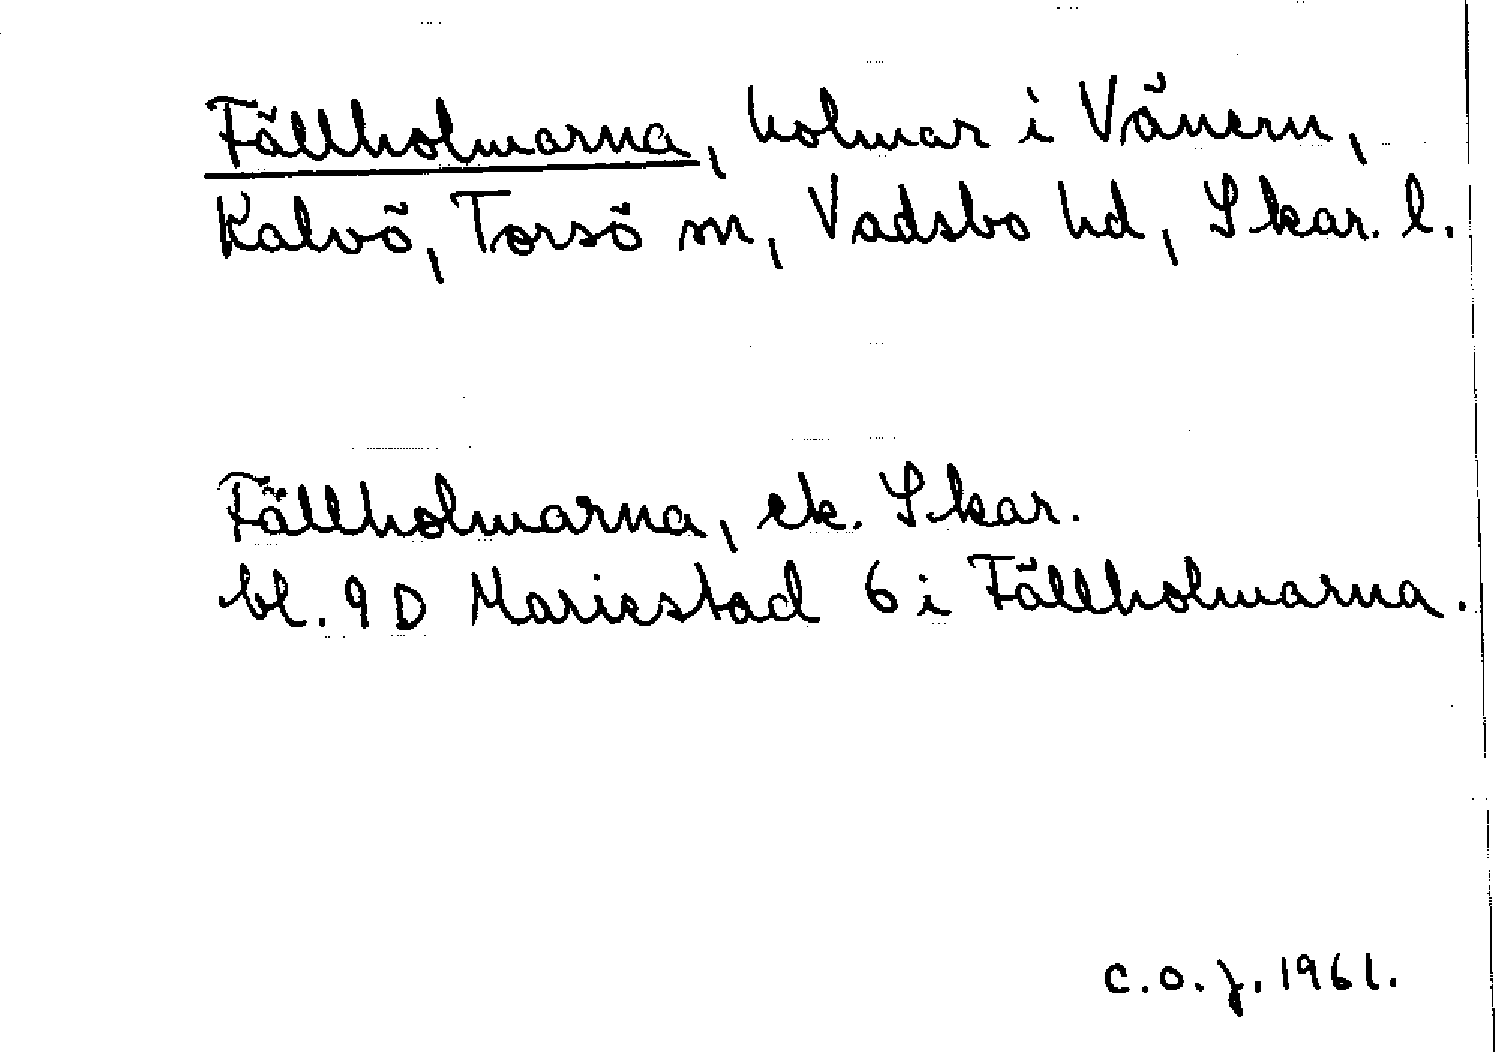 Fällholmarna, holmar i Vänern,
Kalvö, Torsö sn, Vadsbo hd, Skar. l.
Fällholmarna, ek. Skar.
bl. 9 D Mariestad 6 i Fällholmarna.
C.O.J. 1961.